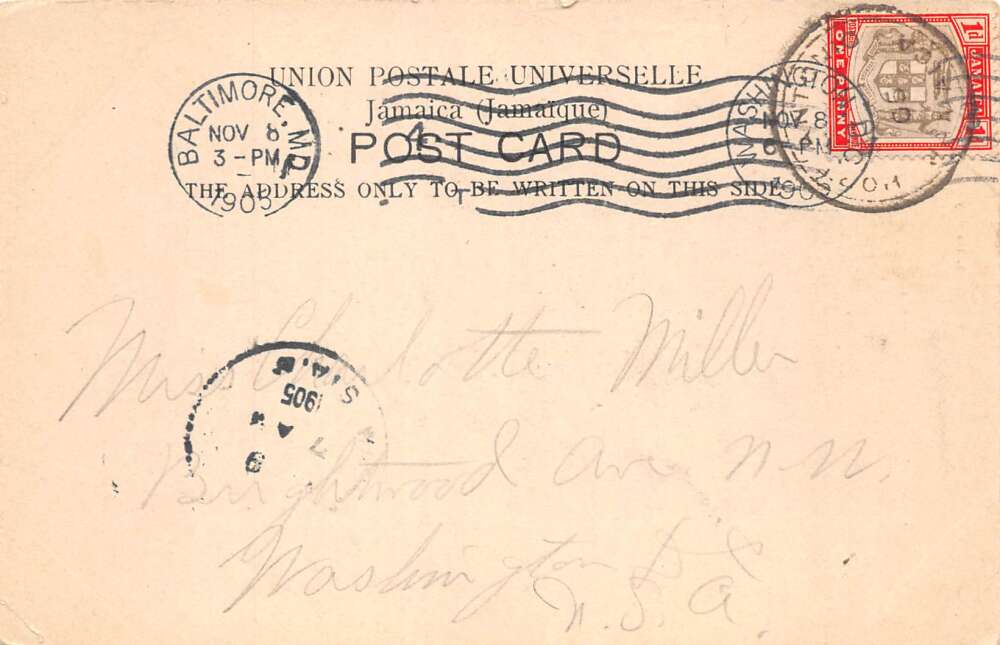 UNION POSTALE UNIVERSELLE
Jamaica (Jamaïque)
POST CARD
THE ADDRESS ONLY TO BE WRITTEN ON THIS SIDE
BALTIMORE, MD.
NOV 8
3-PM
1905
4
WASHINGTON, D.C.
NOV 8
6-PM
1905
JAMAICA
1d
ONE PENNY
Miss Charlotte Miller
Brightwood Ave N.W.
Washington D.C.
U.S.A.
S.A.
1905
A M
7
9